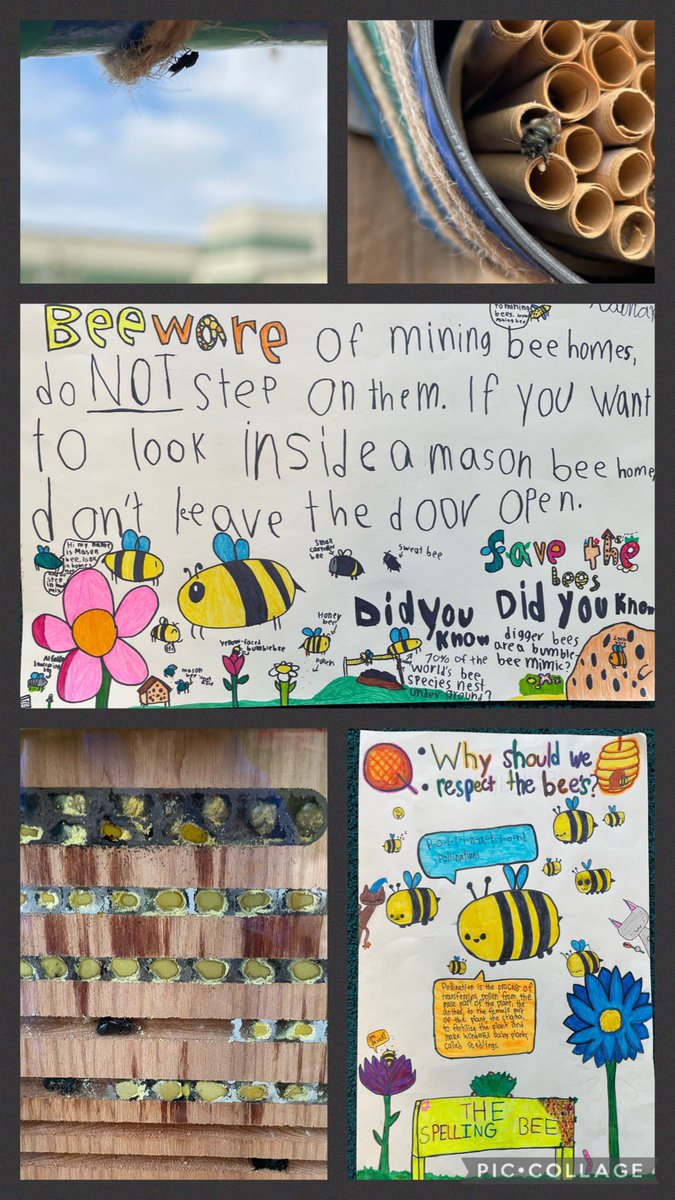 to mining
bees. 
mining bee
Beeware of mining bee homes,
do NOT step on them. If you want
to look inside a mason bee home,
don't leave the door open.
Hi my name
is Mason
bee, look
Small
carpenter
bee
sweat bee
fave the
bees
Did you
know
Did you know
digger bees
are a bumble
bee mimic?
Honey
bee
yellow-faced
bumblebee
70% of the
world's bee
species nest
under ground?
Hi
mason
bee
Why should we
respect the bee's?
P-o-l-l-i-n-a-t-i-o-n!
Pollination!
Pollination is the process of
transferring pollen from the
male part of the plant, the
anther, to the female part
of the plant, the stigma,
to fertilize the plant and
make wonderful baby plants,
called seedlings.
THE
SPELLING BEE
PIC•COLLAGE